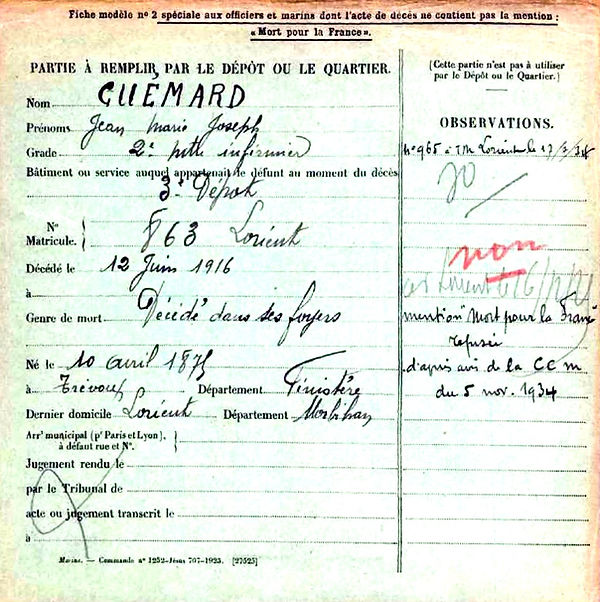 Fiche modèle nº 2 spéciale aux officiers et marins dont l'acte de décès ne contient pas la mention :
« Mort pour la France ».
PARTIE À REMPLIR PAR LE DÉPÔT OU LE QUARTIER.
Nom GUEMARD
Prénoms Jean Marie Joseph
Grade 2e mtre infirmier
Bâtiment ou service auquel appartenait le défunt au moment du décès
3e Dépôt
Nº Matricule. 863 Lorient
Décédé le 12 Juin 1916
à
Genre de mort Décédé dans ses foyers
Né le 10 avril 1875
à Trévoux Département Finistère
Dernier domicile Lorient Département Morbihan
Arrt municipal (pr Paris et Lyon),
à défaut rue et Nº.
Jugement rendu le
par le Tribunal de
acte ou jugement transcrit le
à
Marine. — Commande nº 1252-Jésus 707-1925. [27525]
(Cette partie n'est pas à utiliser
par le Dépôt ou le Quartier.)
OBSERVATIONS.
Nº 965 à Lorient le 17/3/34
non
mention "Mort pour la France"
refusée
d'après avis de la CCM
du 5 nov. 1934